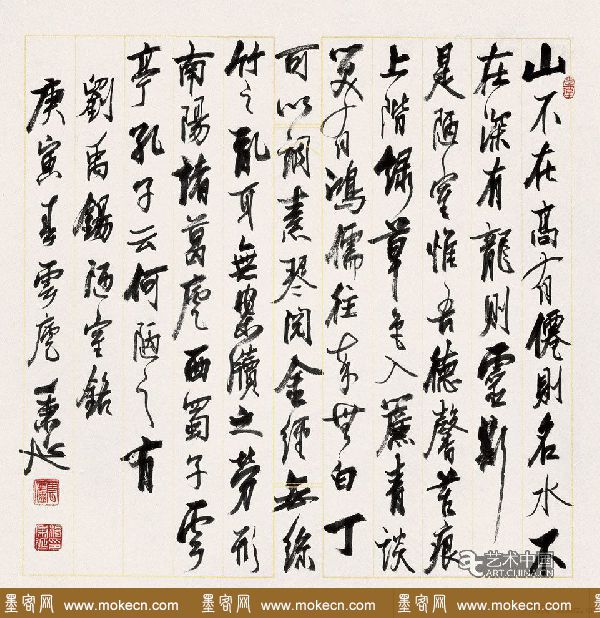 山不在高有僊則名水不
在深有龍則靈斯
是陋室惟吾德馨苔痕
上階綠草色入簾青談
笑有鴻儒往來無白丁
可以調素琴閱金經無絲
竹之亂耳無案牘之勞形
南陽諸葛廬西蜀子雲
亭孔子云何陋之有
劉禹錫陋室銘
庚寅春雲廬
艺术中国
ART.CHINA.CN
墨客网 www.mokecn.com 墨客网 www.mokecn.com 墨客网 www.mokecn.com